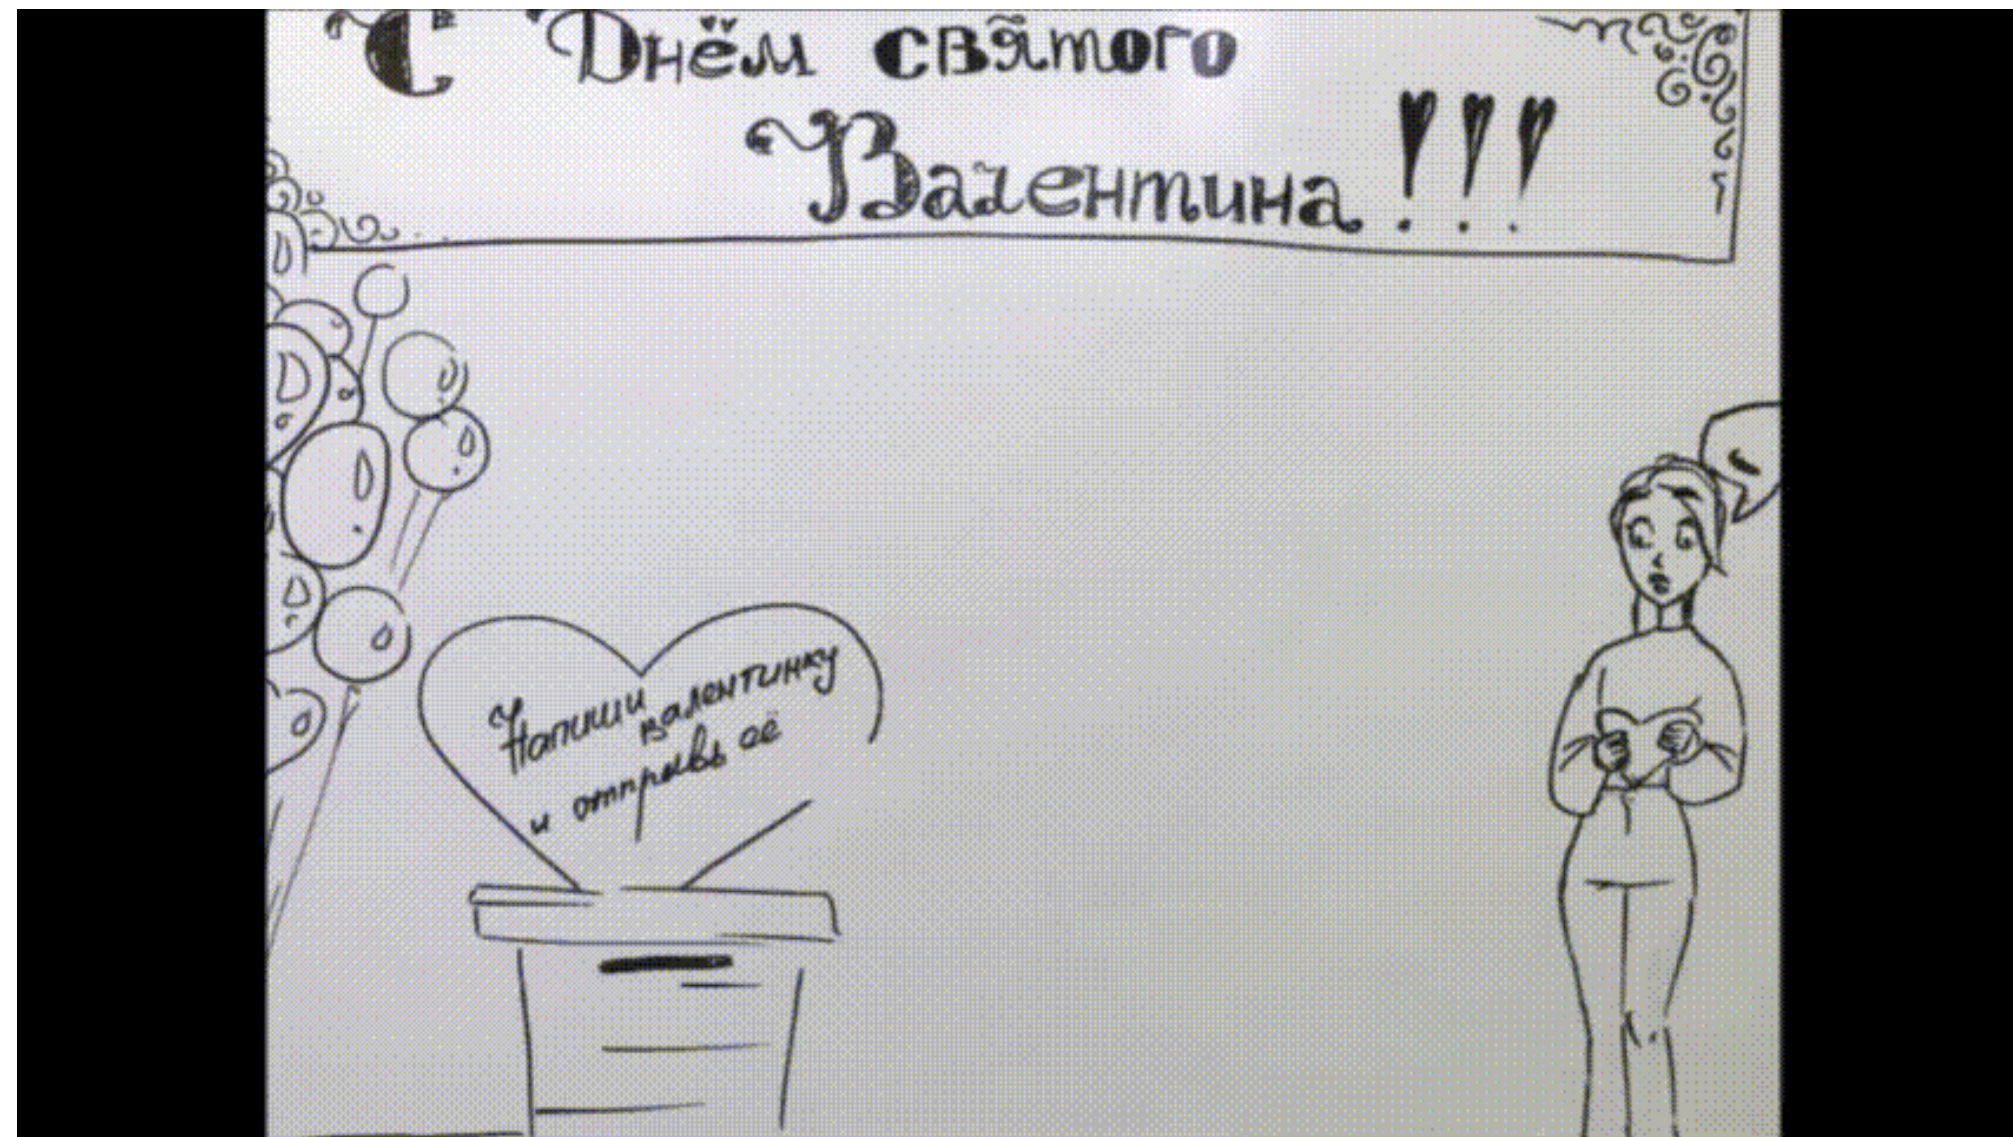 С Днём святого
Валентина!!!
Напиши
валентинку
и отправь её